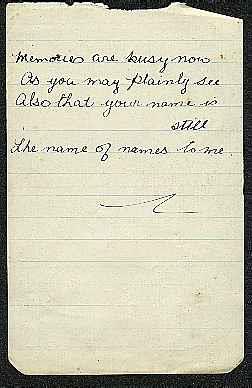 Memories are busy now
As you may plainly see
Also that your name is
still
the name of names to me